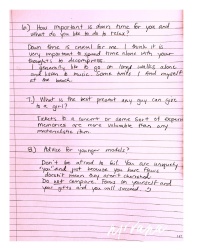 6) How important is down time for you and
what do you like to do to relax?
Down time is crucial for me. I think it is
very important to spend time alone with your
thoughts to decompress.
I generally like to go on long walks alone
and listen to music. Some nights I find myself
at the beach.
7) What is the best present any guy can give
to a girl?
Tickets to a concert or some sort of experience.
Memories are more valuable than any
materialistic item.
8) Advice for younger models?
Don't be afraid to fail. You are uniquely
"you" and just because you have flaws
doesn't mean they aren't cherished.
Do not compare. Focus on yourself and
your gifts and you will succeed. :)